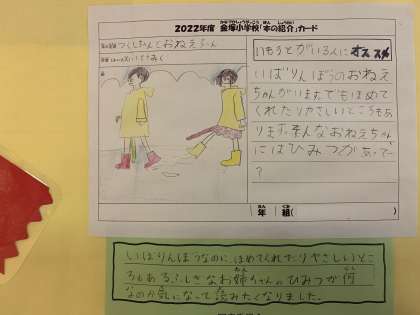 2022年度 金塚小学校「本の紹介」カード
つくしちゃんとおねえちゃん
いもうとがいる人にオススメ
いばりんぼうのおねえ
ちゃんがいます。でもほめて
くれたりやさしいところもあ
ります。そんなおねえちゃん
にはひみつがあって…
?
年 組( )
いばりんぼうなのに、ほめてくれたりやさしいとこ
ろもある、ふしぎなお姉ちゃんのひみつが何
なのか気になって読みたくなりました。